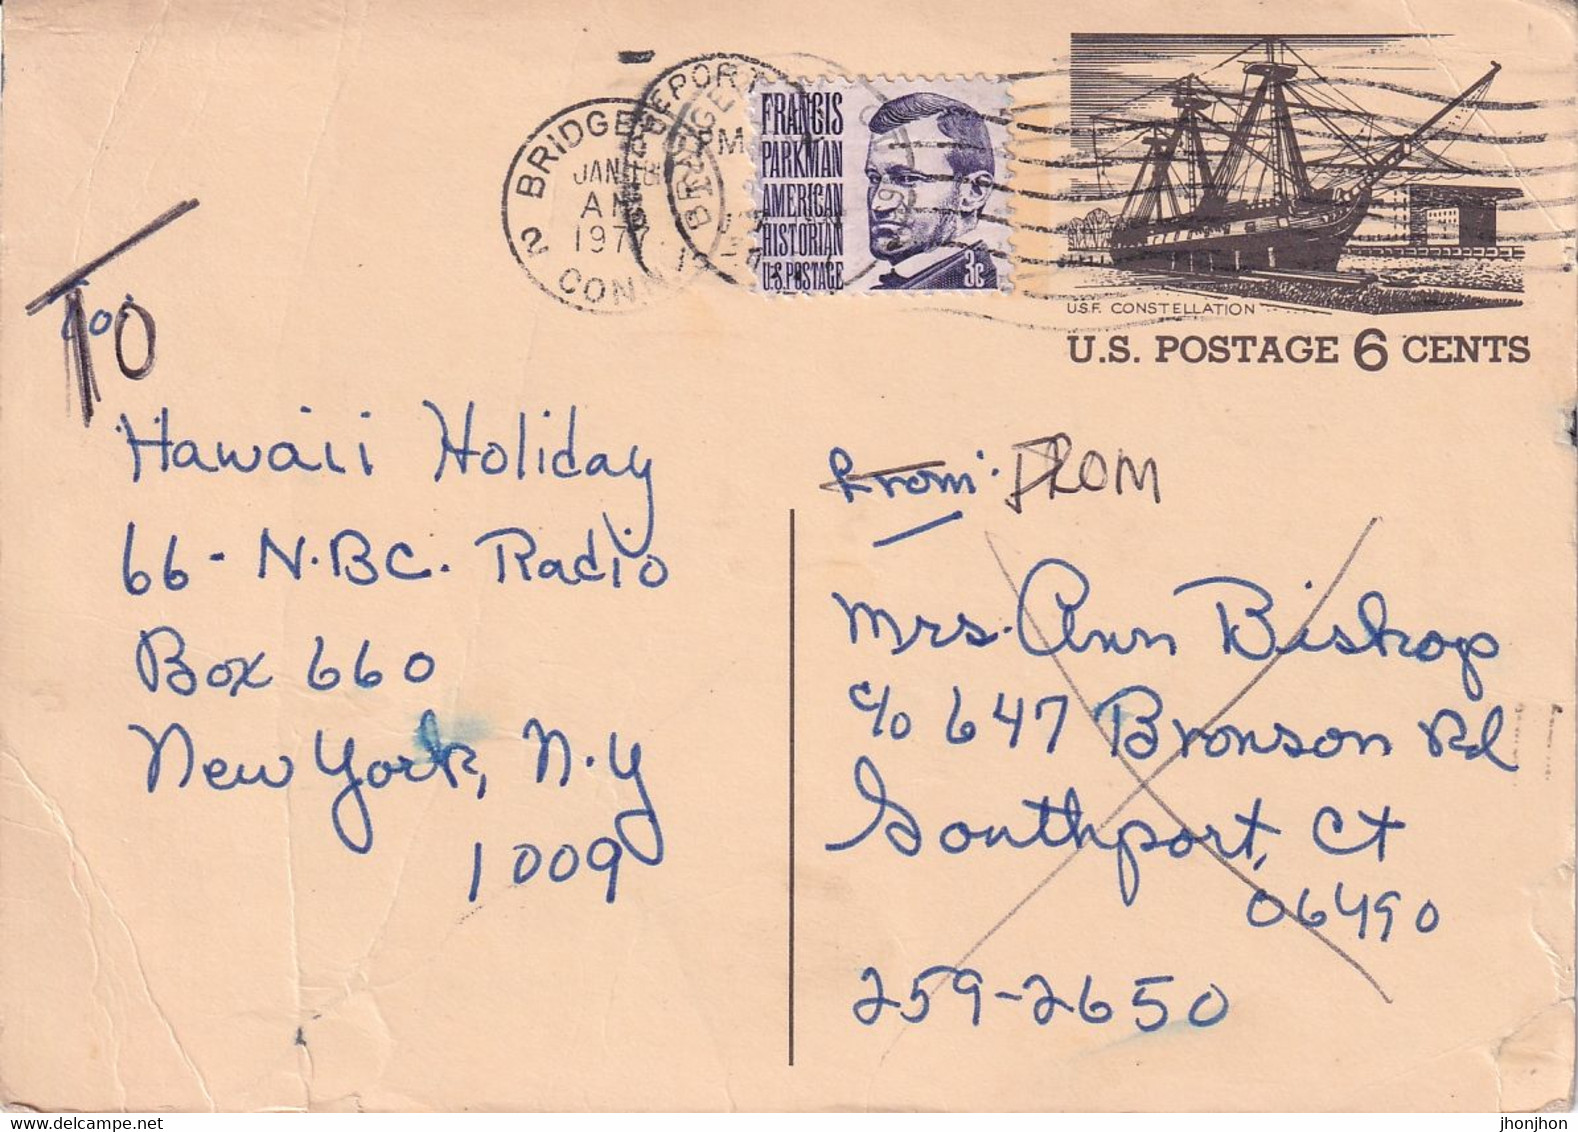 2 BRIDGEPORT
JAN 18
AM
1977
CONN
FRANCIS
PARKMAN
AMERICAN
HISTORIAN
U.S. POSTAGE
3c
U.S.F. CONSTELLATION
U.S. POSTAGE 6 CENTS
TO
Hawaii Holiday
66 - N.BC. Radio
Box 660
New York, N.Y
1009
From: FROM
Mrs. Ann Biskop
c/o 647 Bronson Rd
Southport, Ct
06490
259-2650
www.delcampe.net
jhonjhon